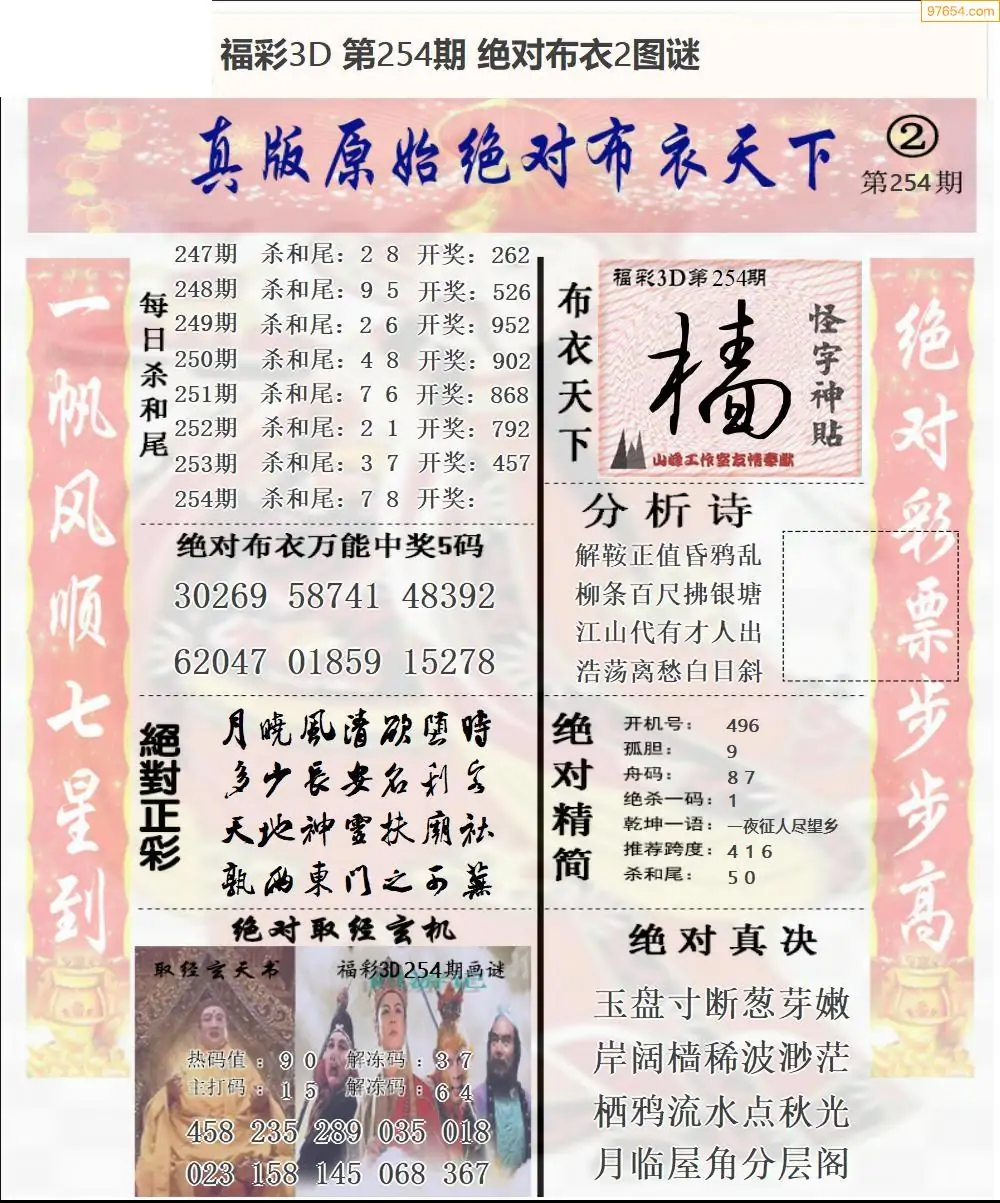 97654.com
福彩3D 第254期 绝对布衣2图谜
真版原始绝对布衣天下
②
第254期
一帆风顺七星到
每日杀和尾
247期 杀和尾：2 8 开奖：262
248期 杀和尾：9 5 开奖：526
249期 杀和尾：2 6 开奖：952
250期 杀和尾：4 8 开奖：902
251期 杀和尾：7 6 开奖：868
252期 杀和尾：2 1 开奖：792
253期 杀和尾：3 7 开奖：457
254期 杀和尾：7 8 开奖：
绝对布衣万能中奖5码
30269 58741 48392
62047 01859 15278
絕對正彩
月曉風清欲墮時
多少長安名利客
天地神靈扶廟社
孰兩東門之可蕪
绝对取经玄机
取经玄天书
福彩3D254期画谜
热码值：9 0 解冻码：3 7
主打码：1 5 解冻码：6 4
458 235 289 035 018
023 158 145 068 367
布衣天下
福彩3D第254期
樯
怪字神贴
山峰工作室友情奉献
分析诗
解鞍正值昏鸦乱
柳条百尺拂银塘
江山代有才人出
浩荡离愁白日斜
绝对精简
开机号：496
孤胆：9
舟码：8 7
绝杀一码：1
乾坤一语：一夜征人尽望乡
推荐跨度：4 1 6
杀和尾：5 0
绝对真决
玉盘寸断葱芽嫩
岸阔樯稀波渺茫
栖鸦流水点秋光
月临屋角分层阁
绝对彩票步步高